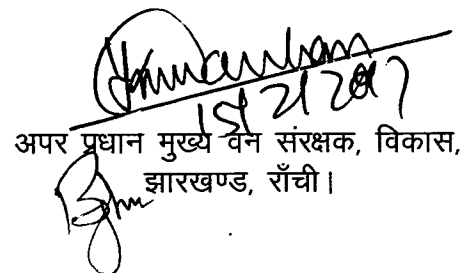 15/2/2017
अपर प्रधान मुख्य वन संरक्षक, विकास,
झारखण्ड, राँची।